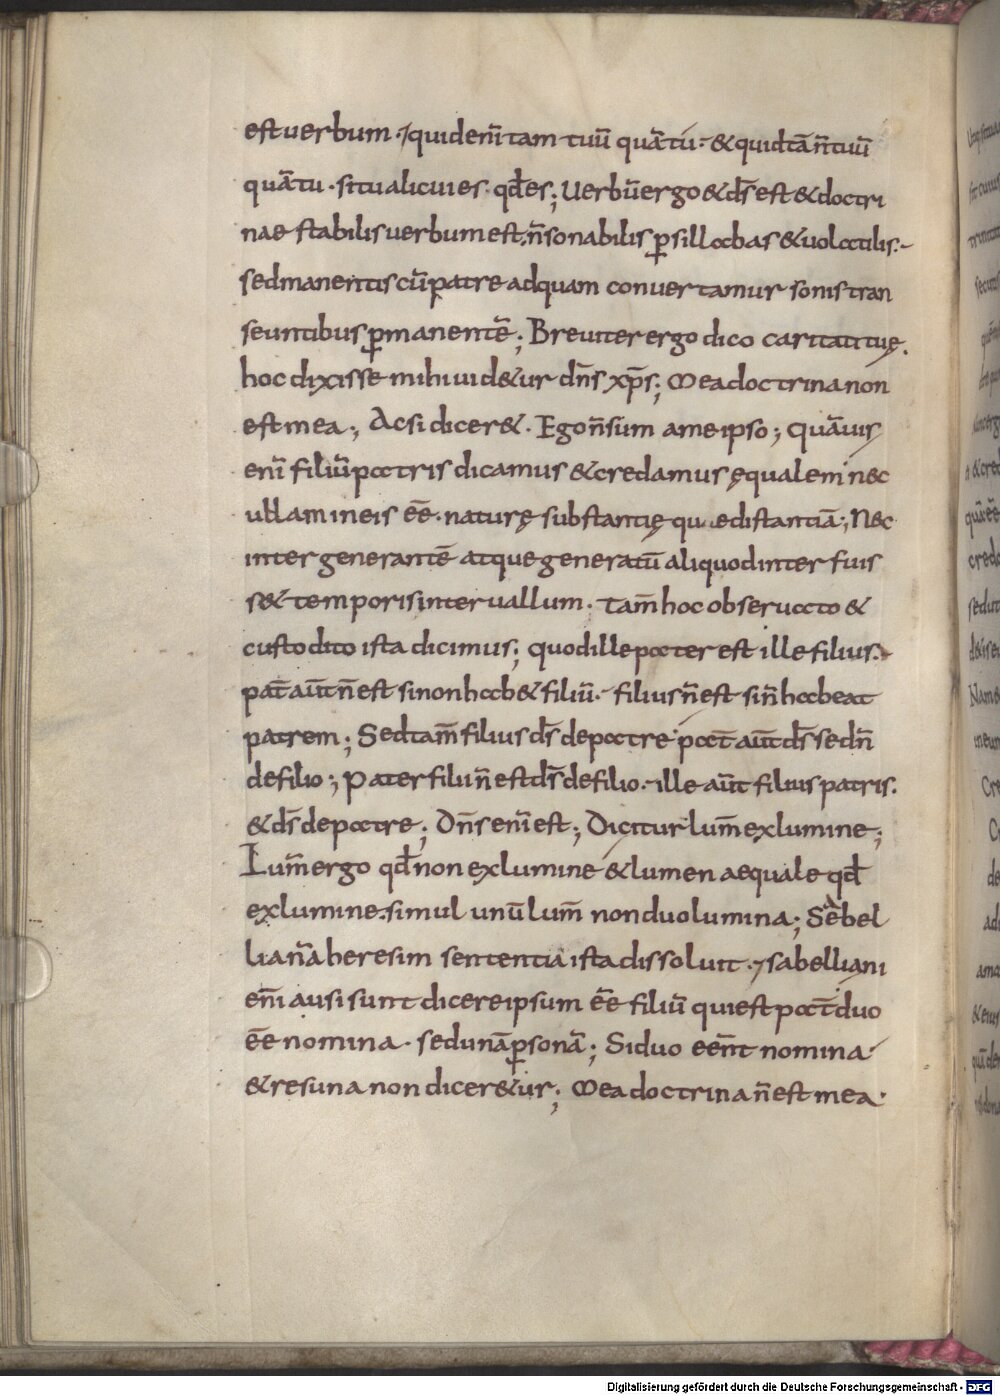 est uerbum · quid enī tam tuū quā tu · & quid tā ñ tuū
quā tu · si tu alicui es · qđ es ; Uerbū ergo & d̄s est & doctri
nae stabilis uerbum est · ñ sonabilis ꝑ sillabas & uolatilis ·
sed manentis cū patre ad quam conuertamur sonis tran
seuntibus ꝑmanentē ; Breuiter ergo dico caritati tuę ·
hoc dixisse mihi uid&ur dn̄s xp̄s ; Mea doctrina non
est mea ; Acsi dicer& · Ego ñ sūm a me ipso ; Quāuis
enī filiū patris dicamus & credamus ęqualem nec
ullam in eis eē · naturę substantię qu edistantiā ; Nec
inter generantē atque generatū aliquod interfuis
s& temporis interuallum · tam̄ hoc obseruato &
custodito ista dicimus ; quod ille pater est ille filius ·
pat̄ aūt ñ est si non hab& filiū · filius ñ est si ñ habeat
patrem ; Sed tam̄ filius d̄s de patre pat̄ aūt d̄s sed ñ
de filio ; Pater filii ñ est d̄s de filio · ille aūt filius patris ·
& d̄s de patre ; Dn̄s enī est ; Dicitur lum̄ ex lumine ;
Lum̄ ergo qđ non ex lumine & lumen aequale qđ
ex lumine · simul unū lum̄ non duo lumina ; Sēbel
lianā heresim sententia ista dissoluit · sabelliani
enī ausi sunt dicere ipsum eē filiū qui est pat̄ duo
eē nomina · sed unā ꝑsonā ; Si duo eēnt nomina
& res una non dicer&ur ; Mea doctrina ñ est mea ·
Digitalisierung gefördert durch die Deutsche Forschungsgemeinschaft - DFG